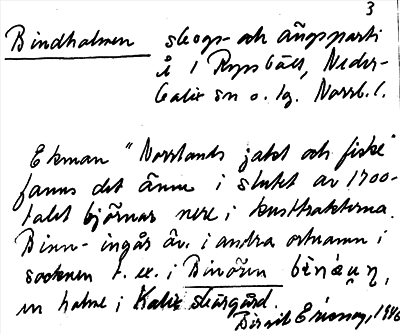 3
Bindholmen skogs- och ängsparti
å 1 Ryssbält, Neder-
kalix sn o. lg. Norrb. l.
Ekman "Norrlands jakt och fiske"
fanns det ännu i slutet av 1700-
talet björnar nere i kusttrakterna.
Binn- ingår äv. i andra ortnamn i
socknen t. ex. i Binörin
en holme i Kalix skärgård.
Birgit Ericson, 1946